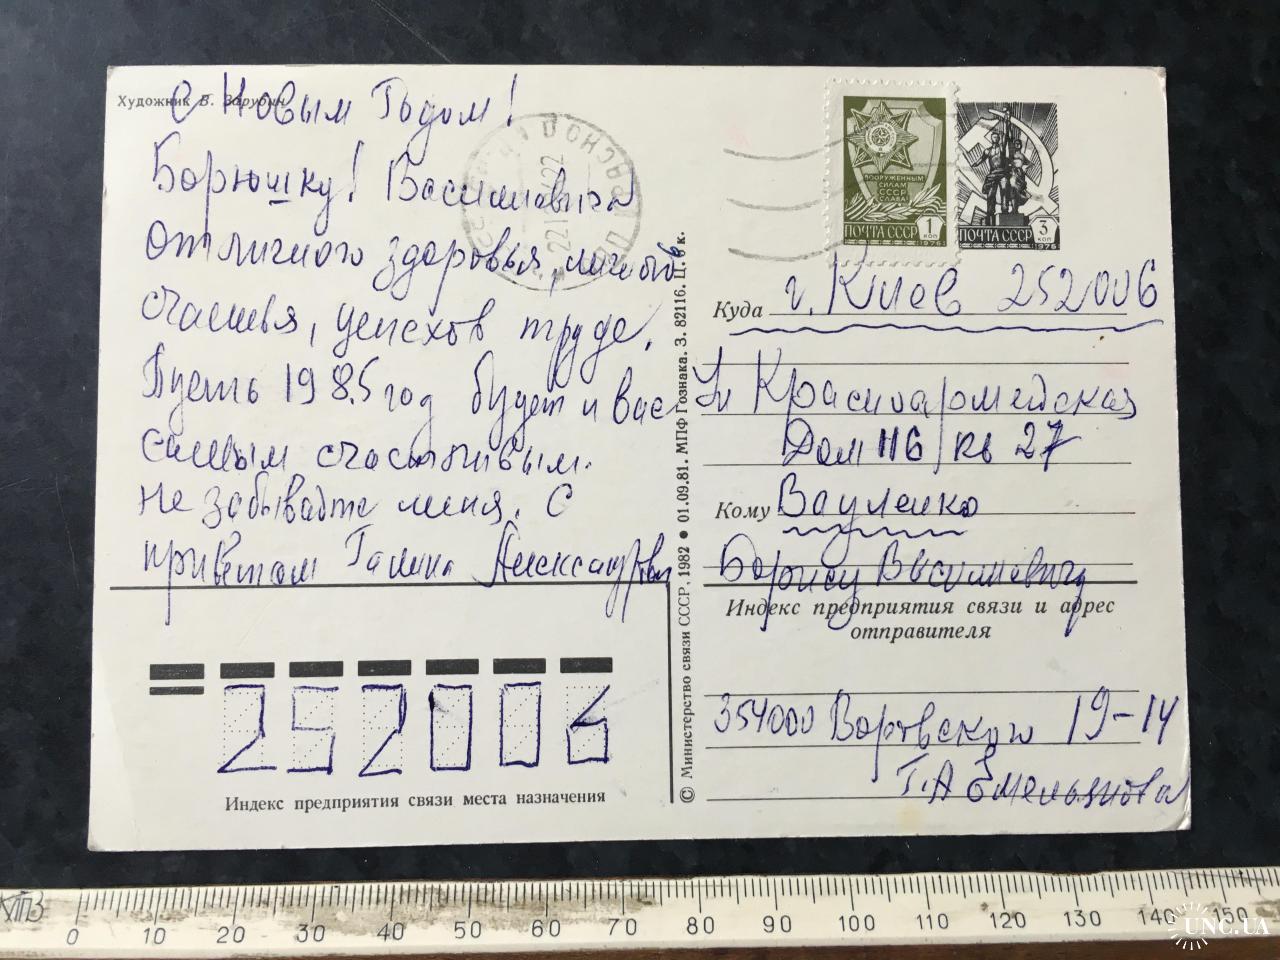 Художник В. Зарубин
С Новым Годом!
Борюшку! Василиевича
отличного здоровья, личного
счастья, успехов труде.
Пусть 1985 год будет и вас
самым счастливым.
Не забывайте меня. С
приветом Галина Александровна
22
ВООРУЖЕННЫМ
СИЛАМ
СССР
СЛАВА!
ПОЧТА СССР 1 КОП
1976
ПОЧТА СССР 3 КОП
1976
Куда г. Киев 252006
Ул Красноармейская
Дом 116 / кв 27
Кому Вауленко
Борису Василиевичу
Индекс предприятия связи и адрес
отправителя
354000 Воровского 19-14
Г.А Емельянова
© Министерство связи СССР. 1982 ● 01.09.81. МПФ Гознака. З. 82116. Ц. 6 к.
252006
Индекс предприятия связи места назначения
0 10 20 30 40 50 60 70 80 90 100 110 120 130 140 150
UNC.UA